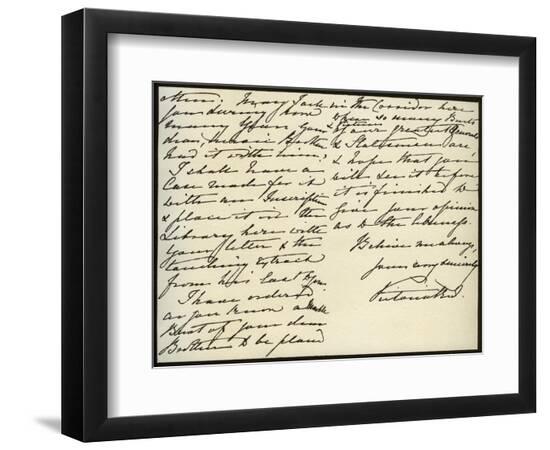 for during how
many years your
dear, heroic Brother
had it with him!
I shall have a
Case made for it
with an Inscription
& place it in the
Library here with
your letter & the
touching Extract
from his last to you.
I have ordered
as you know a Marble
Bust of your dear
Brother to be placed
in the Corridor here
where so many Busts
& Pictures
of our greatest Generals
& Statesmen are,
& hope that you
will see it before
it is finished to
give your opinion
as to the likeness.
Believe me always,
yours very sincerely
Victoria R.I.